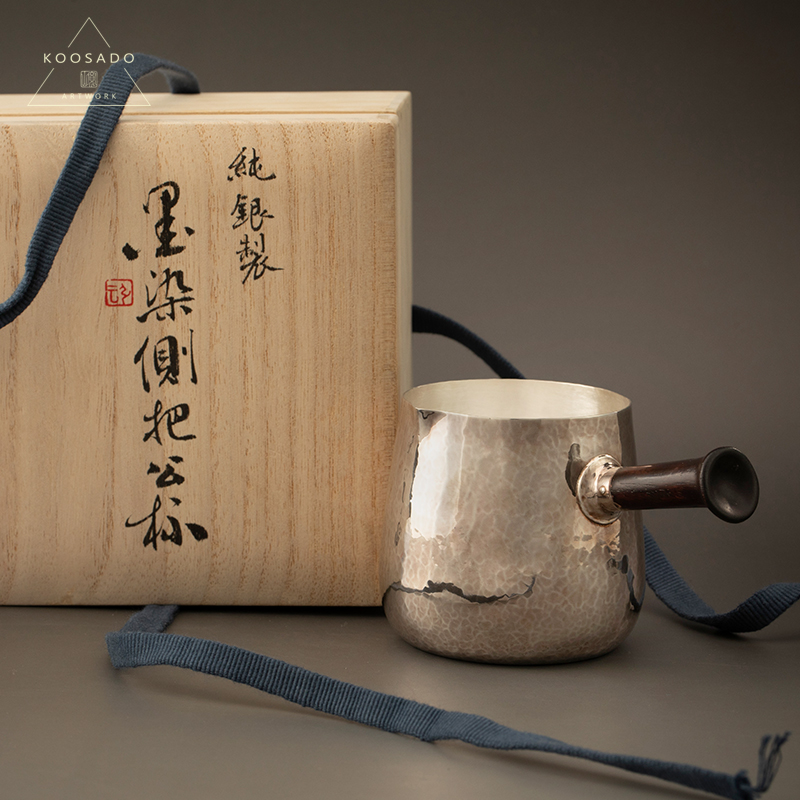 KOOSADO
ARTWORK
純銀製
墨染側把公杯